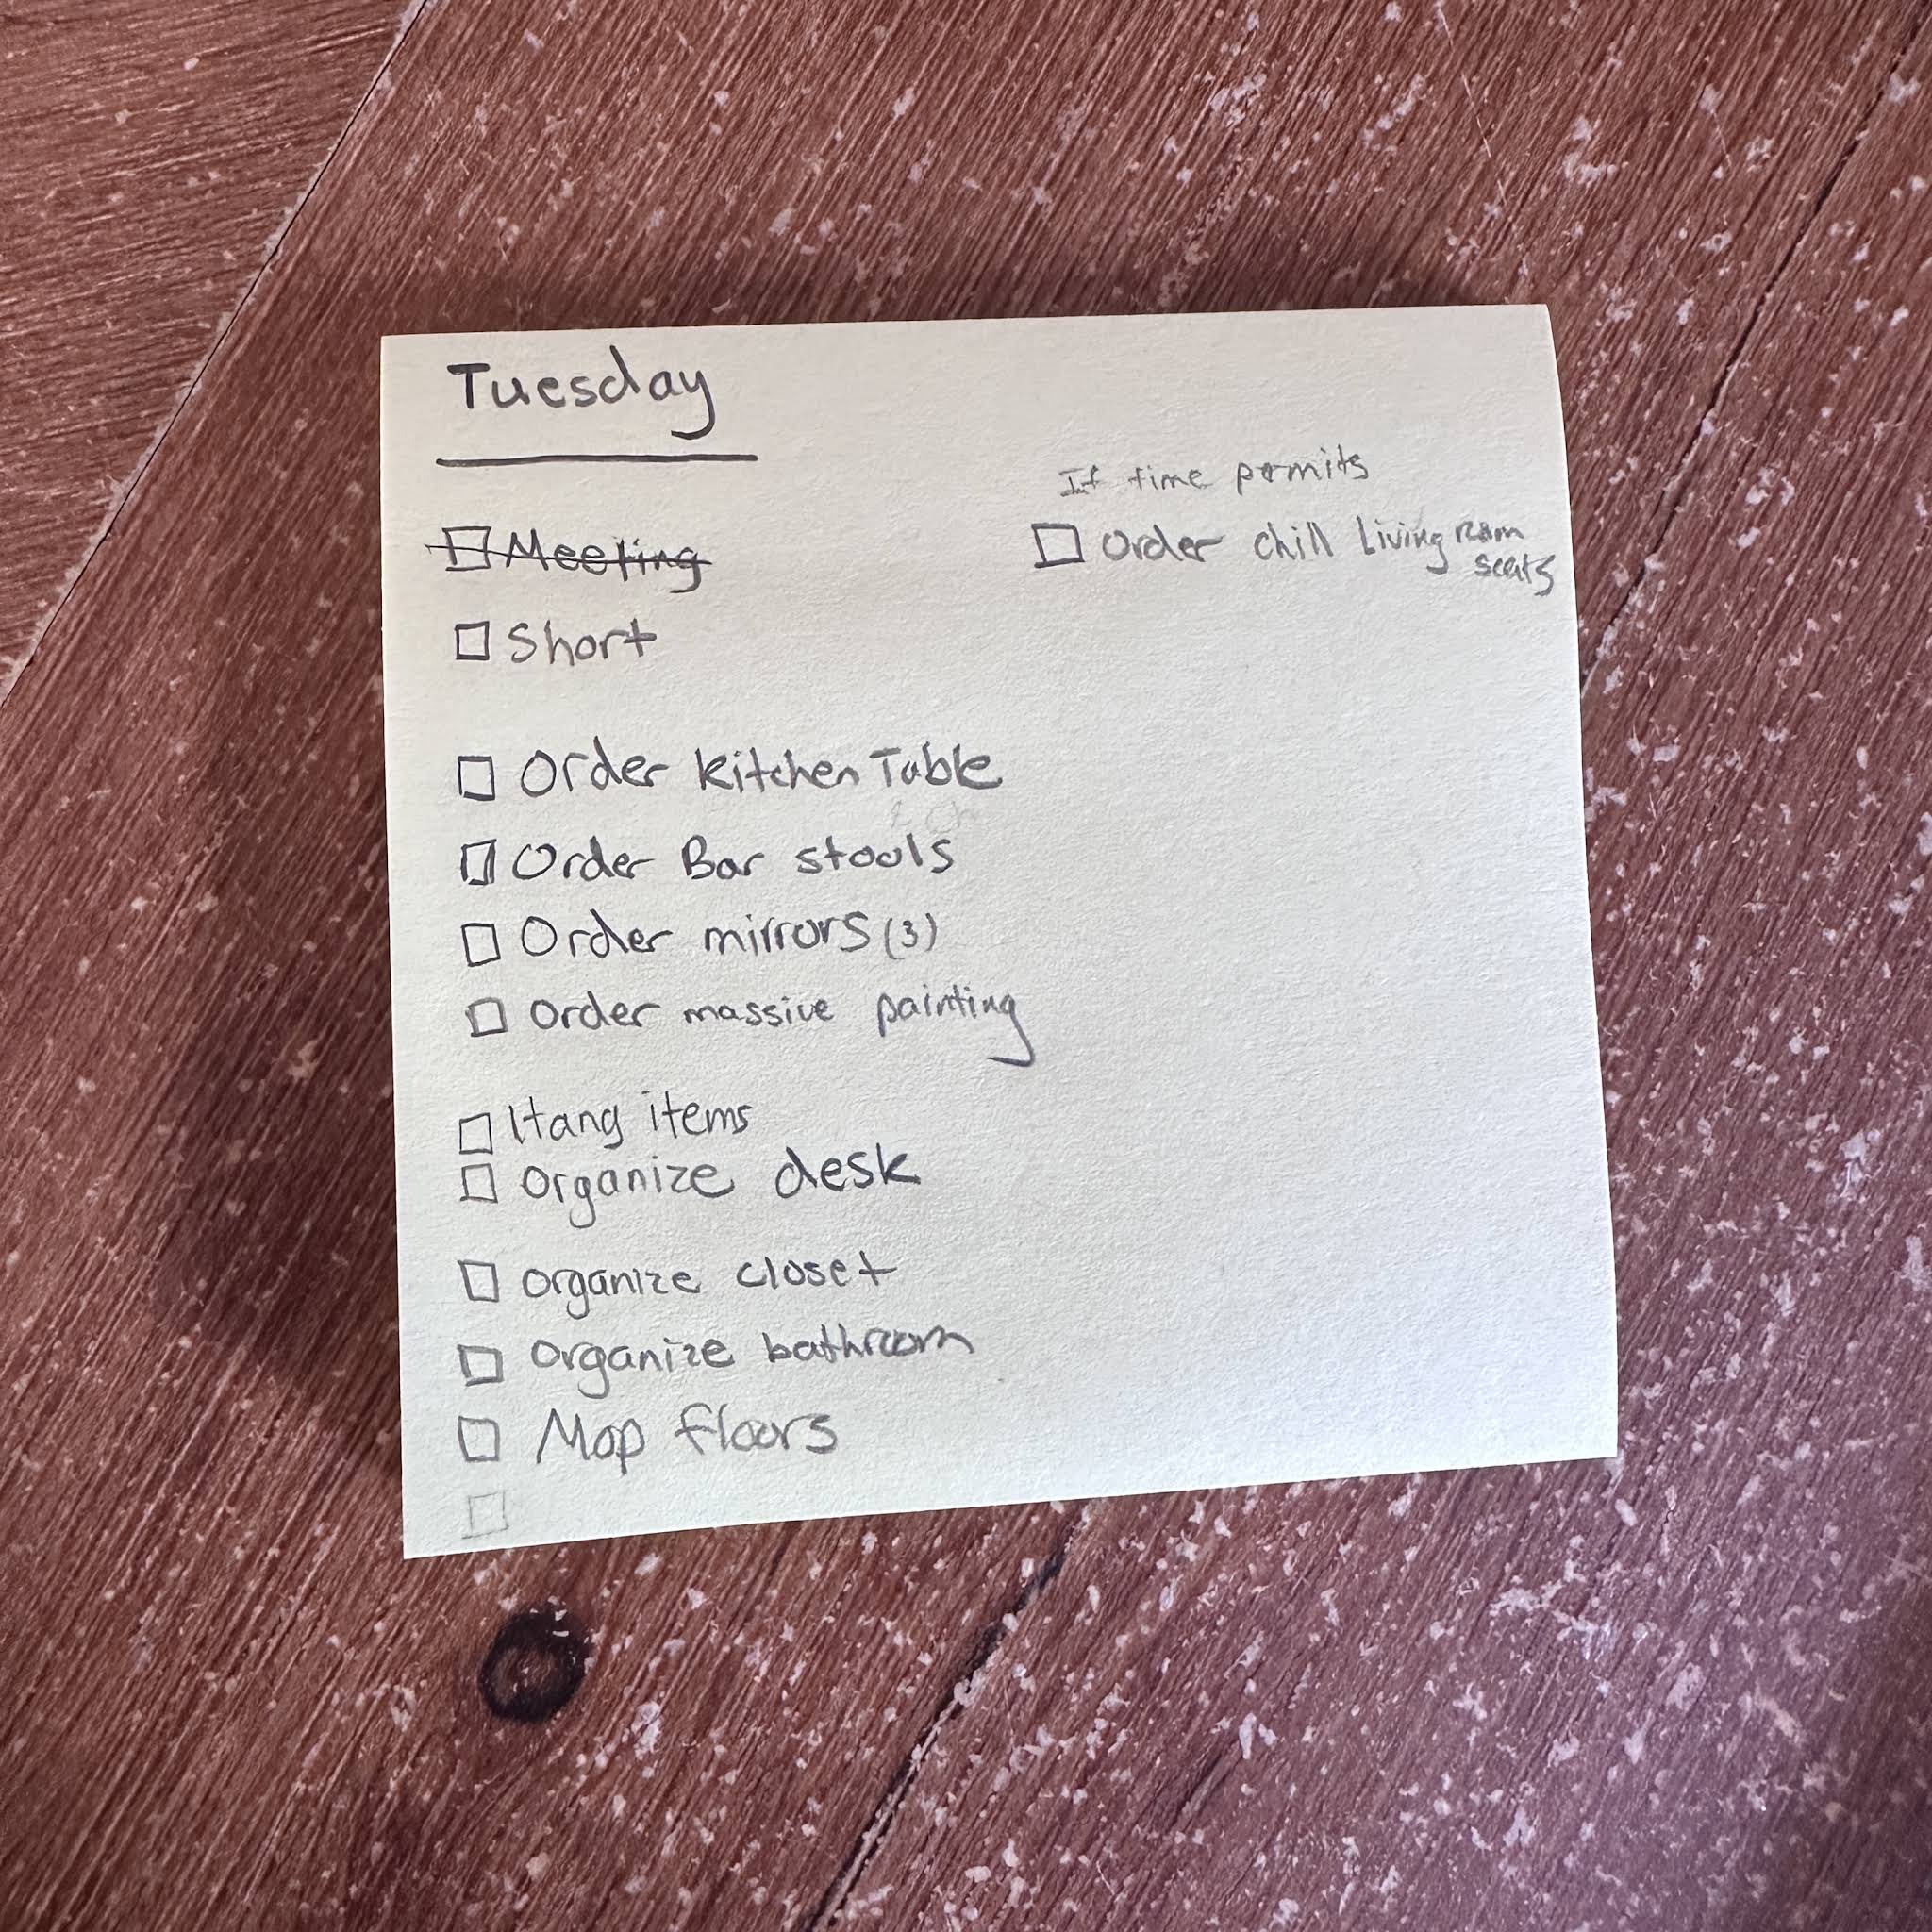 Tuesday
Meeting
Short
Order kitchen Table
Order Bar stools
Order mirrors (3)
Order massive painting
Hang items
Organize desk
organize closet
organize bathroom
Mop floors
If time permits
Order chill Living Room
seats